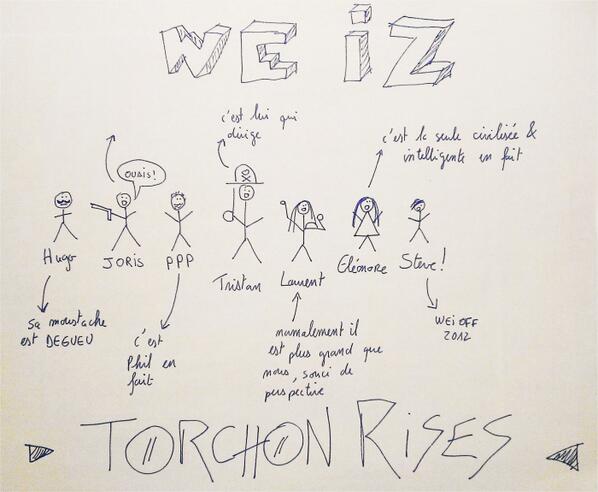 WE iZ
c'est lui qui
dirige
c'est la seule civilisée &
intelligente en fait
OUAIS!
Hugo
JORIS
PPP
Tristan
Laurent
Eléonore
Steve!
Sa moustache
est DEGUEU
c'est
Phil en
fait
nomalement il
est plus grand que
nous, souci de
perspective
WEi OFF
2012
TORCHON RiSES